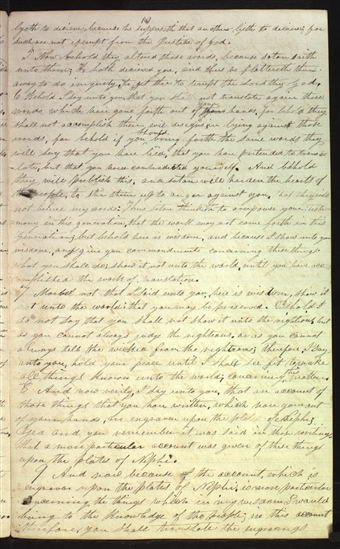 lyeth to deceive because he supposeth that another lyeth to deceive, for
such are not exempt from the Justice of God.
7 Now behold they altered these words, because satan saith
unto them, He hath deceived you, and thus he flattereth them
away to do iniquity, to get thee to tempt the Lord thy God.
8 Behold I say unto you that you shall not translate again those
words which have gone forth out of your hands, for behold they
shall not accomplish their evil designs in lying against those
words, for behold if you should bring forth the same words they
will say that you have lied, that you have pretended to trans-
late, but that you have contradicted yourself. And behold
they will publish this, and satan will harden the hearts of
the people, to stir them up to anger against you,
not believe my words. Thus satan thinketh to overpower your testi-
mony in this generation, that the work may not come forth in this
generation; but behold here is wisdom, and because I shew unto you
wisdom, and give you commandments concerning these things
what you shall do, shew it not unto the world until you have ac-
complished the work of translation.
9 Marvel not that I said unto you, here is wisdom, shew it
not unto the world that you may be preserved. Behold I
do not say that you shall not shew it unto the righteous, but
as you cannot always judge the righteous, or as you cannot
always tell the wicked from the righteous; therefore I say
unto you, hold your peace until I shall see fit to make
all things known unto the world concerning the matter.
10 And now verily I say unto you, that an account of
those things that you have written, which have gone out
of your hands, are engraven upon the plates of Nephi;
yea and you remember it was said in those writings
that a more particular account was given of these things
upon the plates of Nephi.
And now because the account which is
engraven upon the plates of Nephi is more particular
concerning the things which in my wisdom I would
bring to the knowledge of the people in this account
therefore you shall translate the engravings